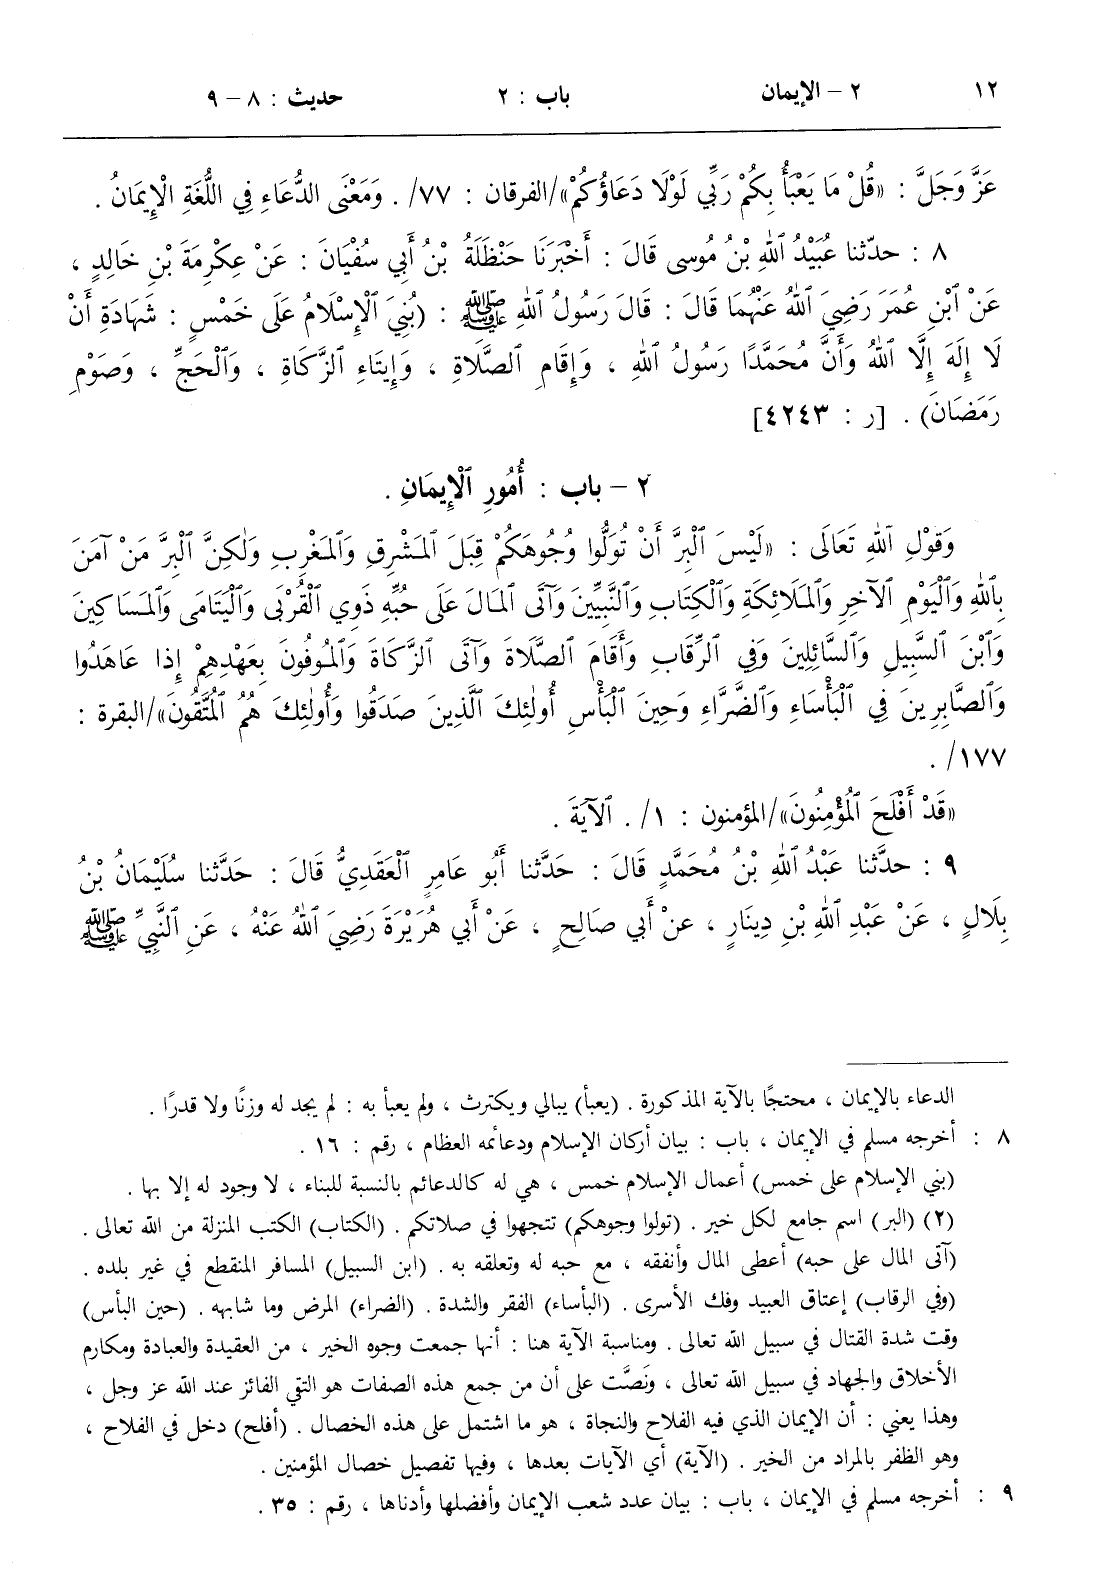 ١٢ ٢ – الإيمان باب : ٢ حديث : ٨ – ٩
عَزَّ وَجَلَّ : «قُلْ مَا يَعْبَأُ بِكُمْ رَبِّي لَوْلَا دَعَاؤُكُمْ»/الفرقان : ٧٧/ . وَمَعْنَى الدُّعَاءِ فِي اللُّغَةِ الْإِيمَانُ .
٨ : حدّثنا عُبَيْدُ اللهِ بْنُ مُوسى قَالَ : أَخْبَرَنَا حَنْظَلَةُ بْنُ أَبِي سُفْيَانَ : عَنْ عِكْرِمَةَ بْنِ خَالِدٍ ،
عَنْ ابْنِ عُمَرَ رَضِيَ اللهُ عَنْهُمَا قَالَ : قَالَ رَسُولُ اللهِ ﷺ : (بُنِيَ الْإِسْلَامُ عَلَى خَمْسٍ : شَهَادَةِ أَنْ
لَا إِلَهَ إِلَّا اللهُ وَأَنَّ مُحَمَّدًا رَسُولُ اللهِ ، وَإِقَامِ الصَّلَاةِ ، وَإِيتَاءِ الزَّكَاةِ ، وَالْحَجِّ ، وَصَوْمِ
رَمَضَانَ) . [ر : ٤٢٤٣]
٢ – باب : أُمُورِ الْإِيمَانِ .
وَقَوْلِ اللهِ تَعَالَى : «لَيْسَ الْبِرَّ أَنْ تُوَلُّوا وُجُوهَكُمْ قِبَلَ الْمَشْرِقِ وَالْمَغْرِبِ وَلٰكِنَّ الْبِرَّ مَنْ آمَنَ
بِاللهِ وَالْيَوْمِ الْآخِرِ وَالْمَلَائِكَةِ وَالْكِتَابِ وَالنَّبِيِّينَ وَآتَى الْمَالَ عَلَى حُبِّهِ ذَوِي الْقُرْبَى وَالْيَتَامَى وَالْمَسَاكِينَ
وَابْنَ السَّبِيلِ وَالسَّائِلِينَ وَفِي الرِّقَابِ وَأَقَامَ الصَّلَاةَ وَآتَى الزَّكَاةَ وَالْمُوفُونَ بِعَهْدِهِمْ إِذا عَاهَدُوا
وَالصَّابِرِينَ فِي الْبَأْسَاءِ وَالضَّرَّاءِ وَحِينَ الْبَأْسِ أُولٰئِكَ الَّذِينَ صَدَقُوا وَأُولٰئِكَ هُمُ الْمُتَّقُونَ»/البقرة :
١٧٧/ .
«قَدْ أَفْلَحَ الْمُؤْمِنُونَ»/المؤمنون : ١/ . الْآيَةَ .
٩ : حدّثنا عَبْدُ اللهِ بْنُ مُحَمَّدٍ قَالَ : حَدَّثنا أَبُو عَامِرٍ الْعَقَدِيُّ قَالَ : حَدَّثنا سُلَيْمَانُ بْنُ
بِلَالٍ ، عَنْ عَبْدِ اللهِ بْنِ دِينَارٍ ، عَنْ أَبِي صَالِحٍ ، عَنْ أَبِي هُرَيْرَةَ رَضِيَ اللهُ عَنْهُ ، عَنِ النَّبِيِّ ﷺ
الدعاء بالإيمان ، محتجًا بالآية المذكورة . (يعبأ) يبالي ويكترث ، ولم يعبأ به : لم يجد له وزنًا ولا قدرًا .
٨ : أخرجه مسلم في الإيمان ، باب : بيان أركان الإسلام ودعائمه العظام ، رقم : ١٦ .
(بني الإسلام على خمس) أعمال الإسلام خمس ، هي له كالدعائم بالنسبة للبناء ، لا وجود له إلا بها .
(٢) (البر) اسم جامع لكل خير . (تولوا وجوهكم) تتجهوا في صلاتكم . (الكتاب) الكتب المنزلة من الله تعالى .
(آتى المال على حبه) أعطى المال وأنفقه ، مع حبه له وتعلقه به . (ابن السبيل) المسافر المنقطع في غير بلده .
(وفي الرقاب) إعتاق العبيد وفك الأسرى . (البأساء) الفقر والشدة . (الضراء) المرض وما شابهه . (حين البأس)
وقت شدة القتال في سبيل الله تعالى . ومناسبة الآية هنا : أنها جمعت وجوه الخير ، من العقيدة والعبادة ومكارم
الأخلاق والجهاد في سبيل الله تعالى ، ونَصَّت على أن من جمع هذه الصفات هو التقي الفائز عند الله عز وجل ،
وهذا يعني : أن الإيمان الذي فيه الفلاح والنجاة ، هو ما اشتمل على هذه الخصال . (أفلح) دخل في الفلاح ،
وهو الظفر بالمراد من الخير . (الآية) أي الآيات بعدها ، وفيها تفصيل خصال المؤمنين .
٩ : أخرجه مسلم في الإيمان ، باب : بيان عدد شعب الإيمان وأفضلها وأدناها ، رقم : ٣٥ .